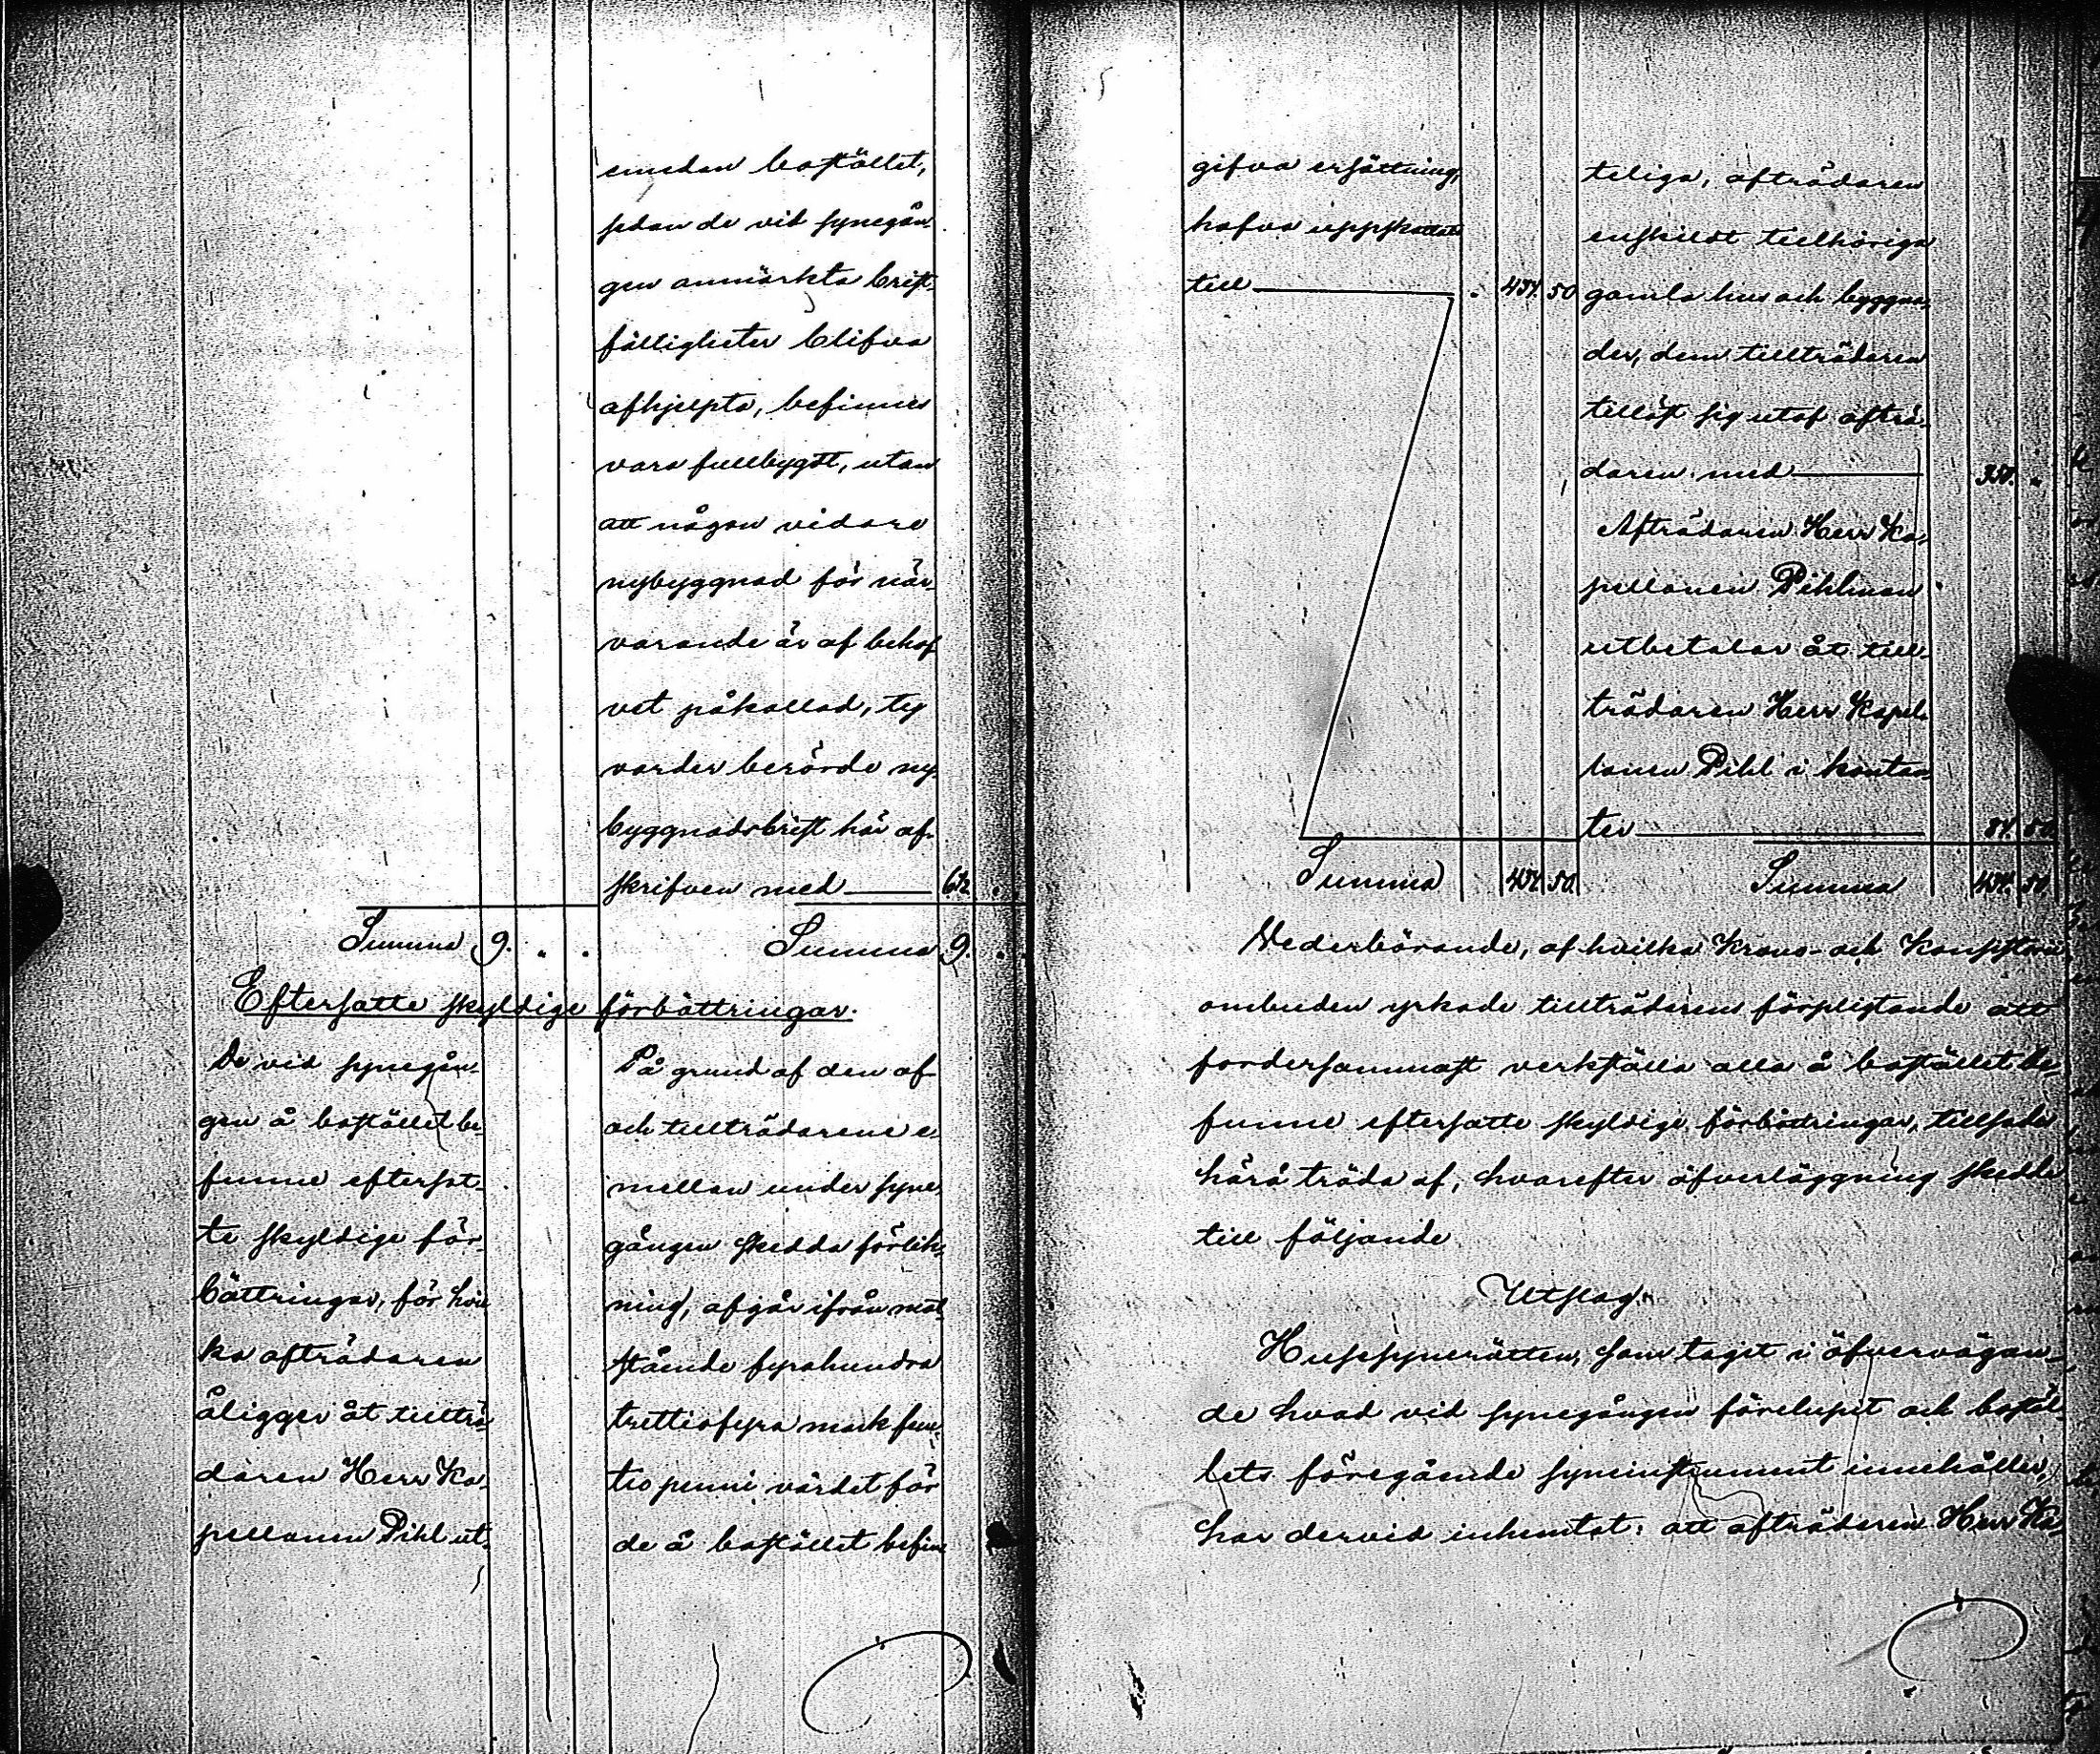 emedan bostället,
sedan de vid synegån-
gen anmärkta brist-
fälligheter blifva
afhjelpta, befinnes
vara fullbygdt, utan
att någon vidare
nybyggnad för när-
varande är af behof
vet påkallad, ty
varder berörde ny
byggnadsbrist här af-
skrifven med 6½ .
Summa 9. „ . Summa 9. . .
Eftersatte skyldige förbättringar.
De vid synegån-
gen å bostället be-
funne eftersat-
te skyldige för-
bättringar, för hvil
ka afträdaren
åligger åt tillträ-
daren Herr Ka-
pellanen Pihl ut-
På grund af den af
och tillträdarene e-
mellan under syne-
gången skedda förlik-
ning, afgår ifrån mot-
stående fyrahundra
trettiofyra mark fem-
tio penni värdet för
de å bostället befin
gifva ersättning,
hafva uppskattats
till . 434. 50
Summa 434. 50
teliga, afträdaren
enskildt tillhöriga
gamla hus och byggna-
der, dem tillträdaren
tillöst sig utaf afträ-
daren med 350. „
Afträdaren Herr Ka-
pellanen Pihlman
utbetalar åt till-
trädaren Herr Kapel-
lanen Pihl i kontan
ter 84. 50
Summa 434. 50
Vederbörande, af hvilka Krono- och
ombuden yrkade tillträdarens förpligtande att
fordersammast verkställa alla å bostället be-
funne eftersatte skyldige förbättringar, tillsades
härå träda af, hvarefter öfverläggning skedde
till följande
Utslag.
Husesynerätten, som tagit i öfvervägan-
de hvad vid synegången förelupit och bostäl-
lets föregående syneinstrument innehåller,
har dervid inhemtat: att afträdaren Herr Ka-